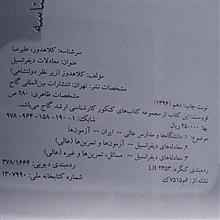 سرشناسه: کلاهدوز، علیرضا
عنوان: معادلات دیفرانسیل
مؤلف: کلاهدوز (زیر نظر دولتشاهی)
مشخصات نشر: تهران: انتشارات بین‌المللی گاج
مشخصات ظاهری: ۲۸۰ ص
نوبت چاپ: دهم (۱۳۹۴)
فروست: این کتاب از مجموعه کتاب‌های کنکور کارشناسی ارشد گاج می‌باشد.
بها: ۲۵۰۰۰۰ ریال
شابک: ۱ - ۱۹۰ - ۱۵۸ - ۹۶۴ - ۹۷۸
موضوع: ۱. دانشگاه‌ها و مدارس عالی -- ایران -- آزمون‌ها
۲. معادله‌های دیفرانسیل -- آزمون‌ها و تمرین‌ها (عالی)
۳. معادله‌های دیفرانسیل -- مسائل، تمرین‌ها و غیره (عالی)
رده‌بندی کنگره: LB ۲۳۵۳
رده‌بندی دیویی: ۳۷۸/۱۶۶۴
شماره کتابخانه ملی: ۱۳۰۷۹۹۰